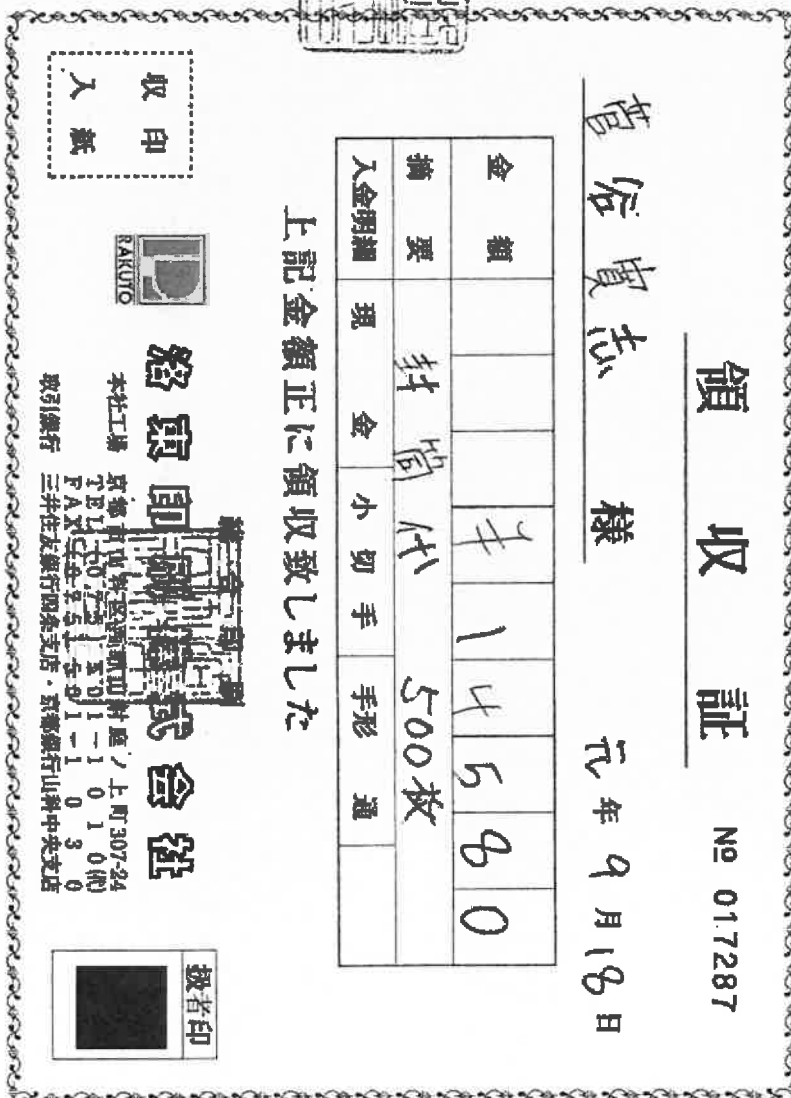 領収証
№ 017287
菅谷寛志 様
元年9月18日
金額 ¥14580
摘要 封筒代 500枚
入金明細 現金 小切手 手形 通
上記金額正に領収致しました
収入印紙
RAKUTO
印 株式会社
本社工場 京都市山科区 上町307-24
TEL 501-1010(代)
FAX 501-1030
取引銀行 三井住友銀行四条支店・京都銀行山科中央支店
扱者印